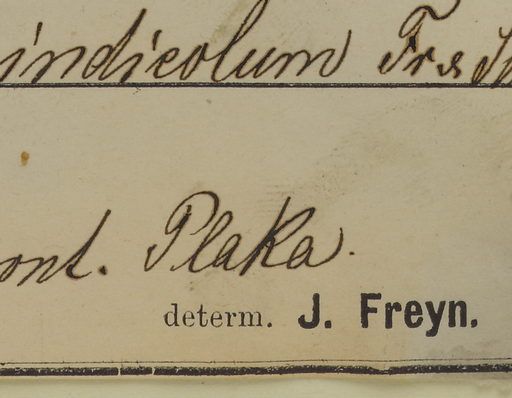 indicolum Fr &
ont. Plaka.
determ. J. Freyn.